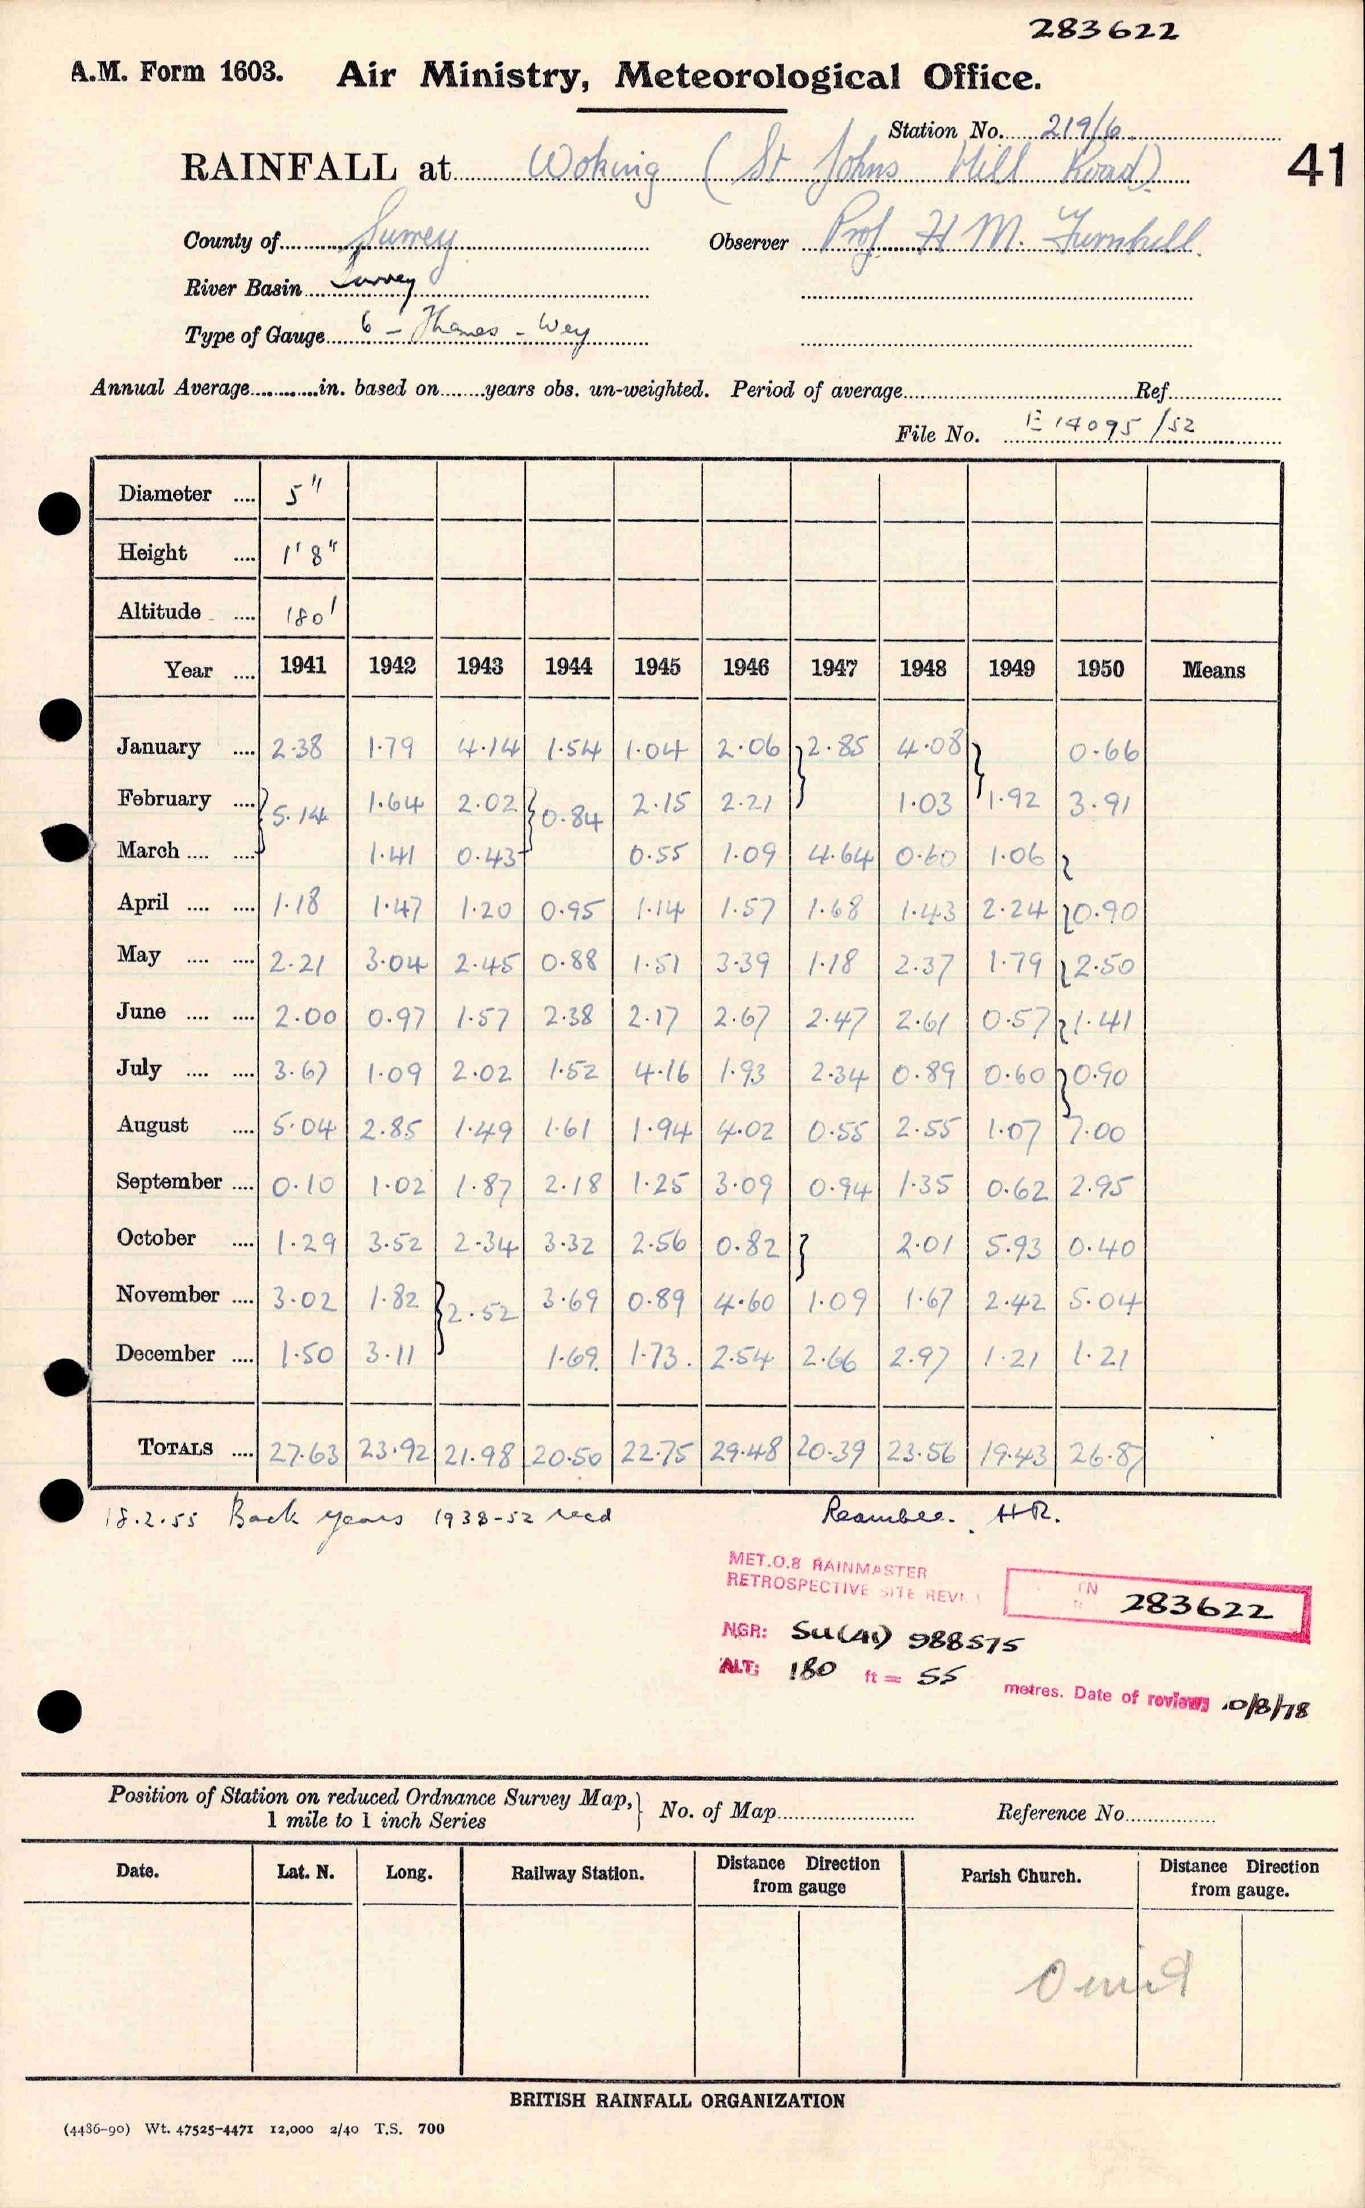 283622
A.M. Form 1603. Air Ministry, Meteorological Office.
Station No. 219/6
RAINFALL at Woking (St Johns Hill Road)
41
County of Surrey Observer Prof. H M. Turnbull
River Basin Survey
Type of Gauge 6 - Thames - Wey
Annual Average............in. based on........years obs. un-weighted. Period of average................Ref................
File No. E 14095/52
Diameter .... 5"
Height .... 1' 8"
Altitude .... 180'
Year .... 1941 1942 1943 1944 1945 1946 1947 1948 1949 1950 Means
January .... 2.38 1.79 4.14 1.54 1.04 2.06 } 2.85 4.08 } 0.66
February .... { 5.14 1.64 2.02 { 0.84 2.15 2.21 1.03 1.92 3.91
March .... .... 1.41 0.43 0.55 1.09 4.64 0.60 1.06 }
April .... .... 1.18 1.47 1.20 0.95 1.14 1.57 1.68 1.43 2.24 } 0.90
May .... .... 2.21 3.04 2.45 0.88 1.51 3.39 1.18 2.37 1.79 } 2.50
June .... .... 2.00 0.97 1.57 2.38 2.17 2.67 2.47 2.61 0.57 } 1.41
July .... .... 3.67 1.09 2.02 1.52 4.16 1.93 2.34 0.89 0.60 } 0.90
August .... 5.04 2.85 1.49 1.61 1.94 4.02 0.55 2.55 1.07 7.00
September .... 0.10 1.02 1.87 2.18 1.25 3.09 0.94 1.35 0.62 2.95
October .... 1.29 3.52 2.34 3.32 2.56 0.82 } 2.01 5.93 0.40
November .... 3.02 1.82 } 2.52 3.69 0.89 4.60 1.09 1.67 2.42 5.04
December .... 1.50 3.11 1.69. 1.73. 2.54 2.66 2.97 1.21 1.21
TOTALS .... 27.63 23.92 21.98 20.50 22.75 29.48 20.39 23.56 19.43 26.87
18.2.55 Back years 1938-52 recd HR.
MET.O.8 RAINMASTER
RETROSPECTIVE SITE REVI
283622
NGR: SU(41) 988575
ALT: 180 ft = 55 metres. Date of review 10/8/78
Position of Station on reduced Ordnance Survey Map, 1 mile to 1 inch Series } No. of Map................ Reference No................
Date. Lat. N. Long. Railway Station. Distance Direction from gauge Parish Church. Distance Direction from gauge.
Omit
BRITISH RAINFALL ORGANIZATION
(4486-90) Wt. 47525-4471 12,000 2/40 T.S. 700